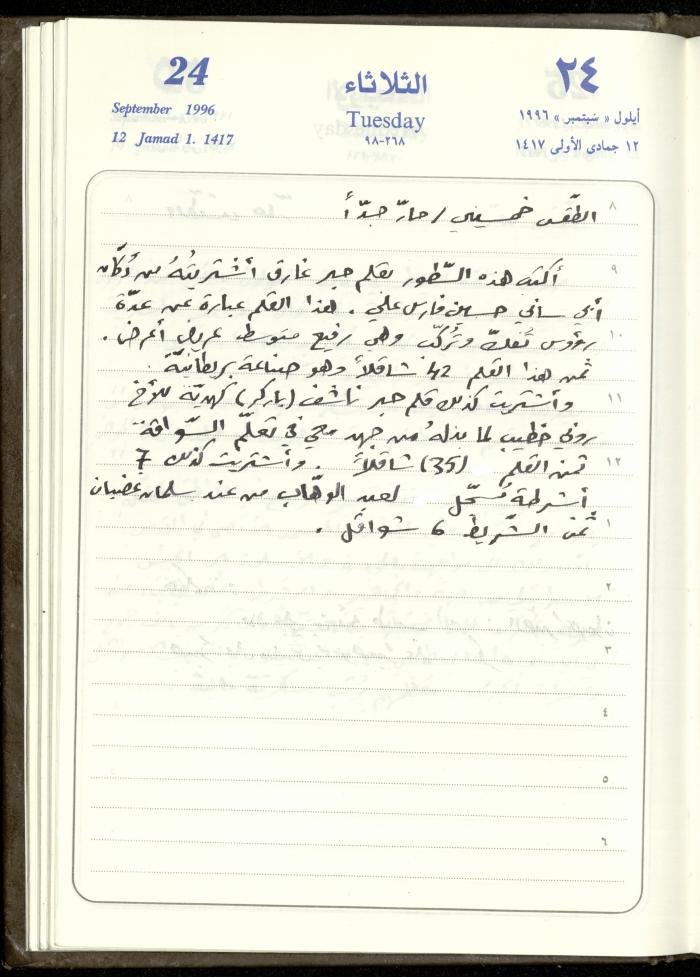 24
September 1996
12 Jamad 1. 1417
الثلاثاء
Tuesday
٩٨-٢٦٨
٢٤
أيلول « سبتمبر » ١٩٩٦
١٢ جمادى الأولى ١٤١٧
٨ الطّقس خمسيني / حارّ جدّاً
٩ أكتب هذه السّطور بقلم حبر غارق أشتريتُهُ من دُكّان
أبي ساني حسين فارس علي . هذا القلم عبارة عن عدّة
١٠ رؤوس تُفكّ وتُركّب وهي رفيع متوسط عريض أعرض .
ثمن هذا القلم 42 شاقلاً وهو صناعة بريطانيّة .
١١ وأشتريت كذلك قلم حبر ناشف (باركر) كهديّة للأخ
روني خطيب لما بذلهُ من جهد معي في تعلّم السّواقة
١٢ ثمن القلم (35) شاقلاً . وأشتريت كذلك 7
أشرطة مُسجّل لعبد الوهّاب من عند سلمان غضبان
١ ثمن الشّريط 6 شواقل .
٢
٣
٤
٥
٦